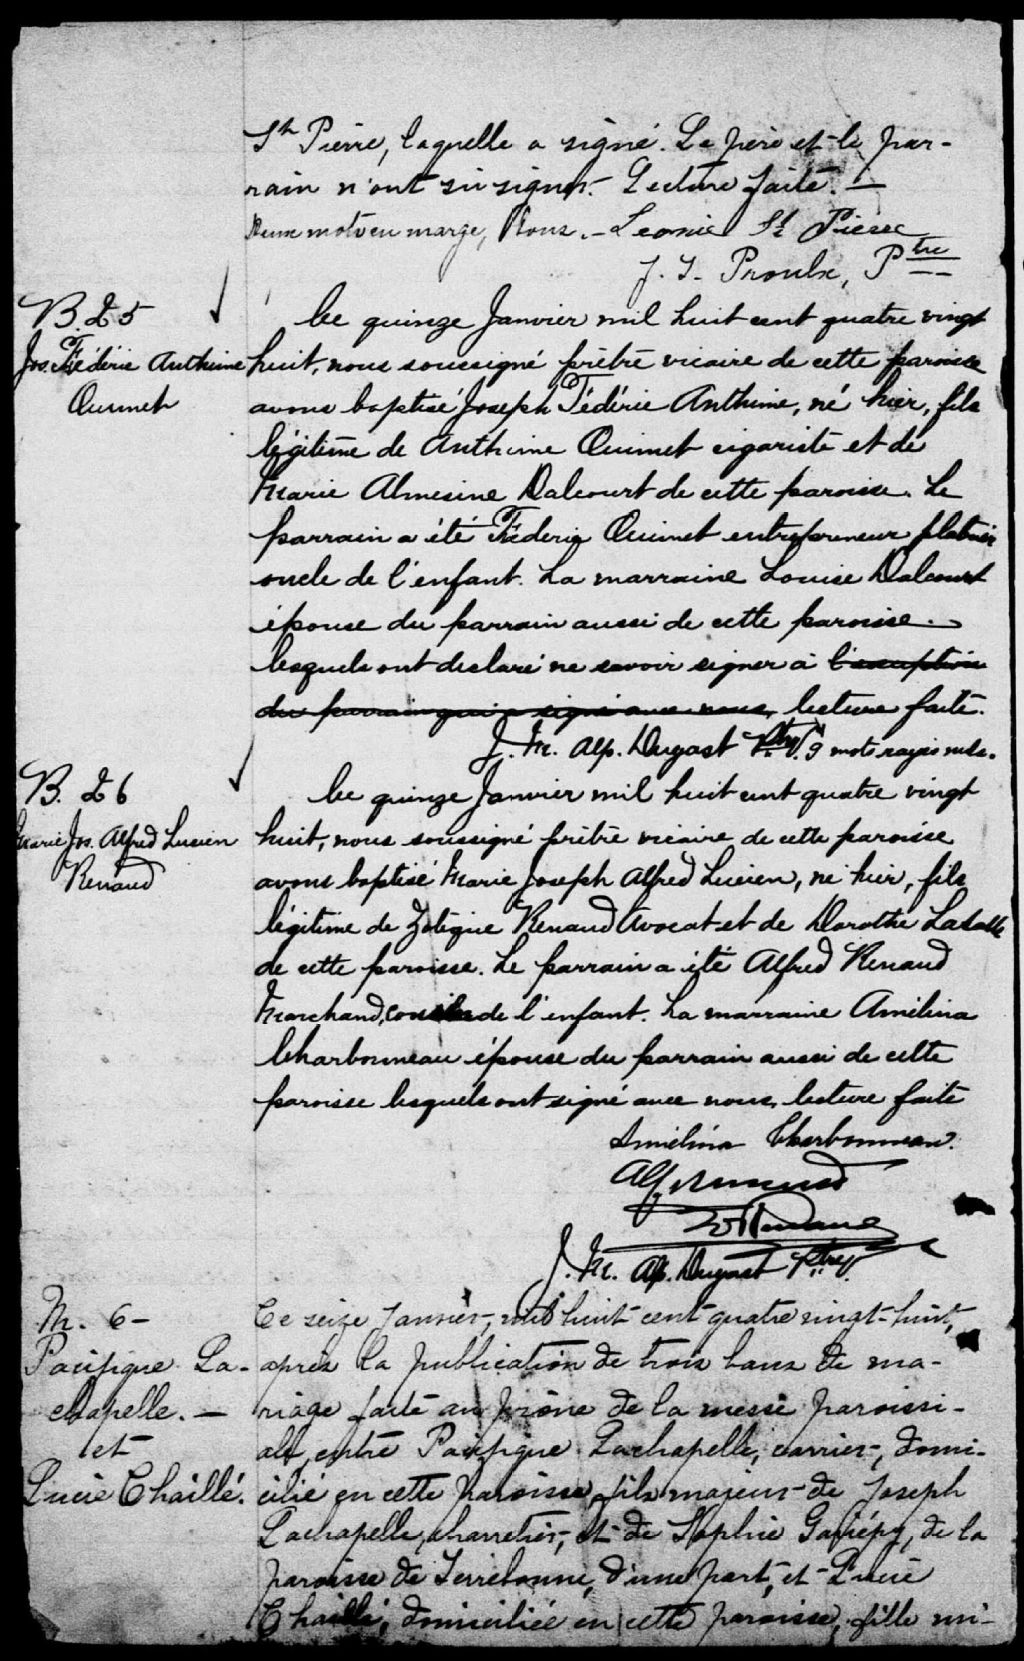 St Pierre, laquelle a signé. Le père et le par-
rain n'ont su signer. Lecture faite. —
Deux mots en marge, bons. – Leonie St Pierre
J. Proulx, Ptre
B. 25
Jos. Fédéric Anthime
Ouimet
Le quinze Janvier mil huit cent quatre vingt
huit, nous soussigné prêtre vicaire de cette paroisse
avons baptisé Joseph Fédéric Anthime, né hier, fils
légitime de Anthime Ouimet cigariste et de
Marie Almesine Dalcourt de cette paroisse. Le
parrain a été Féderic Ouimet entrepreneur platrier
oncle de l'enfant. La marraine Louise Dalcourt
épouse du parrain aussi de cette paroisse.
lesquels ont declaré ne savoir signer à l'exception
du parrain qui a signé avec nous, lecture faite.
J. M. Alp. Dugast Ptre V. 9 mots rayés nuls.
B. 26
Marie Jos. Alfred Lucien
Renaud
Le quinze Janvier mil huit cent quatre vingt
huit, nous soussigné prêtre vicaire de cette paroisse
avons baptisé Marie Joseph Alfred Lucien, né hier, fils
légitime de Zotique Renaud Avocat et de Dorothé Lasalle
de cette paroisse. Le parrain a été Alfred Renaud
Marchand, de l'enfant. La marraine Amélina
Charbonneau épouse du parrain aussi de cette
paroisse lesquels ont signé avec nous, lecture faite
Amélina Charbonneau.
Alf. Renaud
Z. Renaud
J. M. Alp. Dugast Ptre V.
M. 6 –
Pacifique La-
chapelle. —
et
Lucie Chaillé.
Ce seize Janvier, mil huit cent quatre vingt-huit,
après la publication de trois bans de ma-
riage faite au prône de la messe paroissi-
ale, entre Pacifique Lachapelle, carrier, domi-
cilié en cette paroisse, fils majeur de Joseph
Lachapelle, charretier, et de Sophie Gariépy, de la
paroisse de Terrebonne, d'une part, et Lucie
Chaillé, domiciliée en cette paroisse, fille mi-